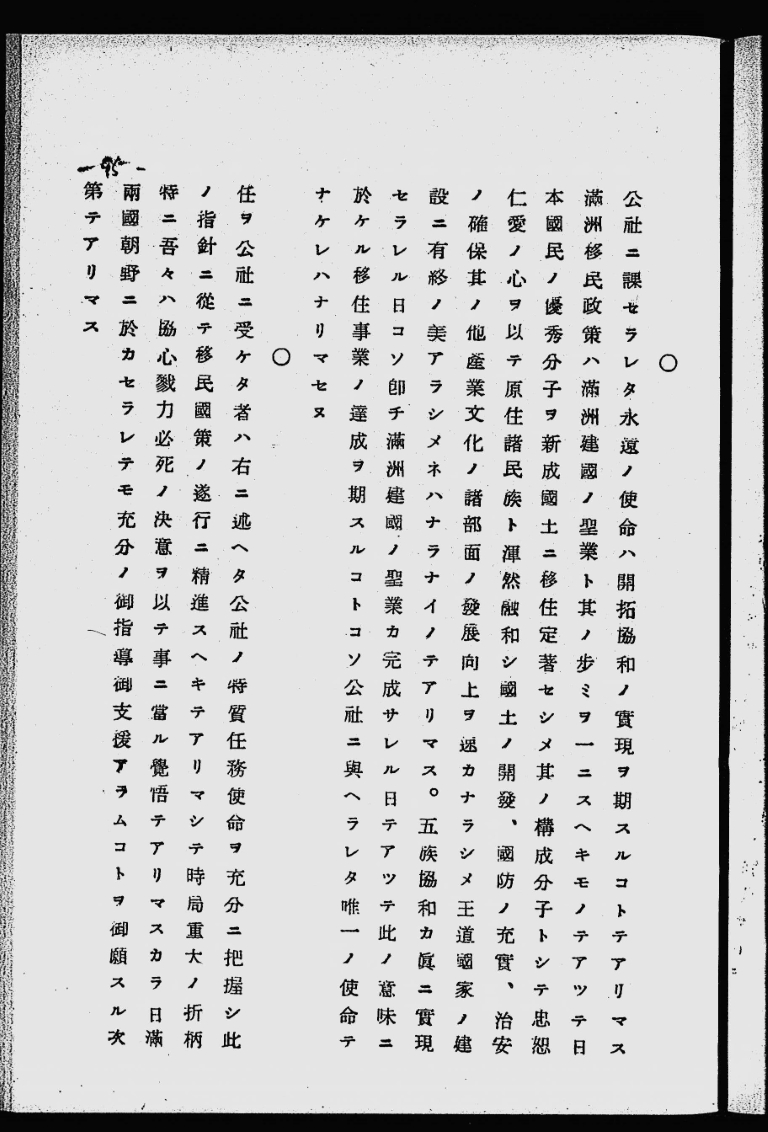 〇
公社ニ課セラレタ永遠ノ使命ハ開拓協和ノ實現ヲ期スルコトテアリマス
滿洲移民政策ハ滿洲建國ノ聖業ト其ノ步ミヲ一ニスヘキモノテアツテ日
本國民ノ優秀分子ヲ新成國土ニ移住定著セシメ其ノ構成分子トシテ忠恕
仁愛ノ心ヲ以テ原住諸民族ト渾然融和シ國土ノ開發、國防ノ充實、治安
ノ確保其ノ他產業文化ノ諸部面ノ發展向上ヲ速カナラシメ王道國家ノ建
設ニ有終ノ美アラシメネハナラナイノテアリマス。五族協和カ眞ニ實現
セラレル日コソ卽チ滿洲建國ノ聖業カ完成サレル日テアツテ此ノ意味ニ
於ケル移住事業ノ達成ヲ期スルコトコソ公社ニ與ヘラレタ唯一ノ使命テ
ナケレハナリマセヌ
〇
任ヲ公社ニ受ケタ者ハ右ニ述ヘタ公社ノ特質任務使命ヲ充分ニ把握シ此
ノ指針ニ從テ移民國策ノ遂行ニ精進スヘキテアリマシテ時局重大ノ折柄
特ニ吾々ハ協心戮力必死ノ決意ヲ以テ事ニ當ル覺悟テアリマスカラ日滿
兩國朝野ニ於カセラレテモ充分ノ御指導御支援アラムコトヲ御願スル次
第テアリマス
-95-